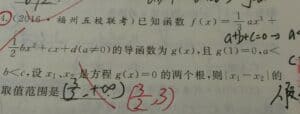 4.(2016·福州五校联考)已知函数 f(x)=1/3ax³+ a+b+c=0→
1/2bx²+cx+d(a≠0)的导函数为 g(x),且 g(1)=0,a<
b<c,设 x₁、x₂ 是方程 g(x)=0 的两个根,则|x₁-x₂|的
取值范围是 (3/2,+∞) (3/2,3)